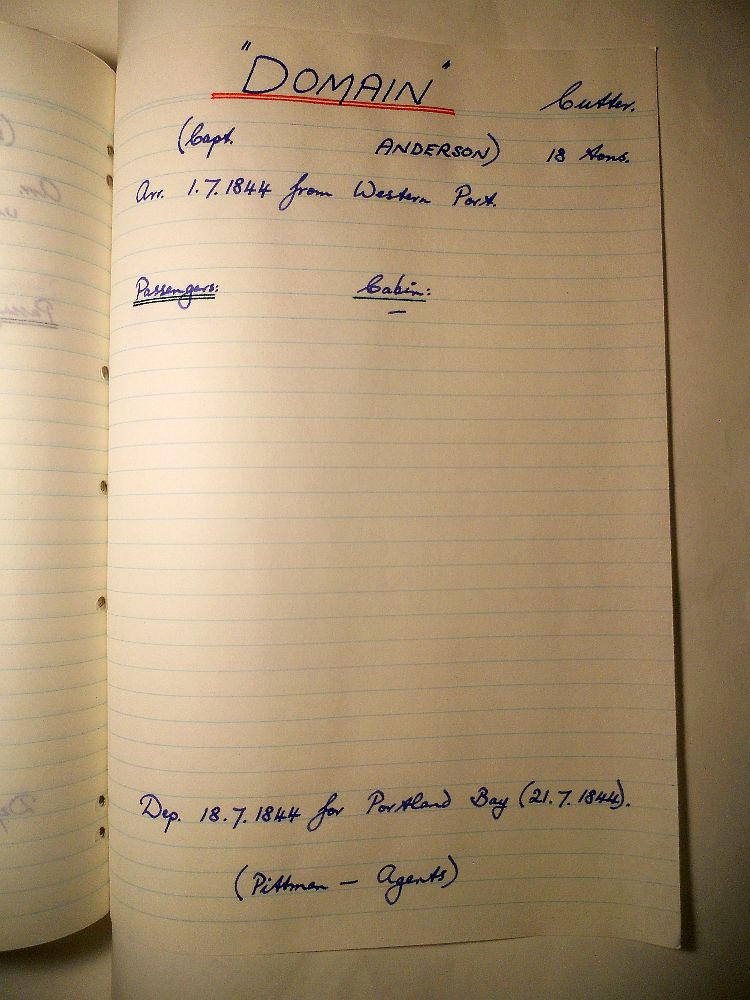 "DOMAIN" Cutter.
(Capt. ANDERSON) 18 tons.
Arr. 1.7.1844 from Western Port.
Passengers: Cabin:
—
Dep. 18.7.1844 for Portland Bay (21.7.1844).
(Pittman — Agents)